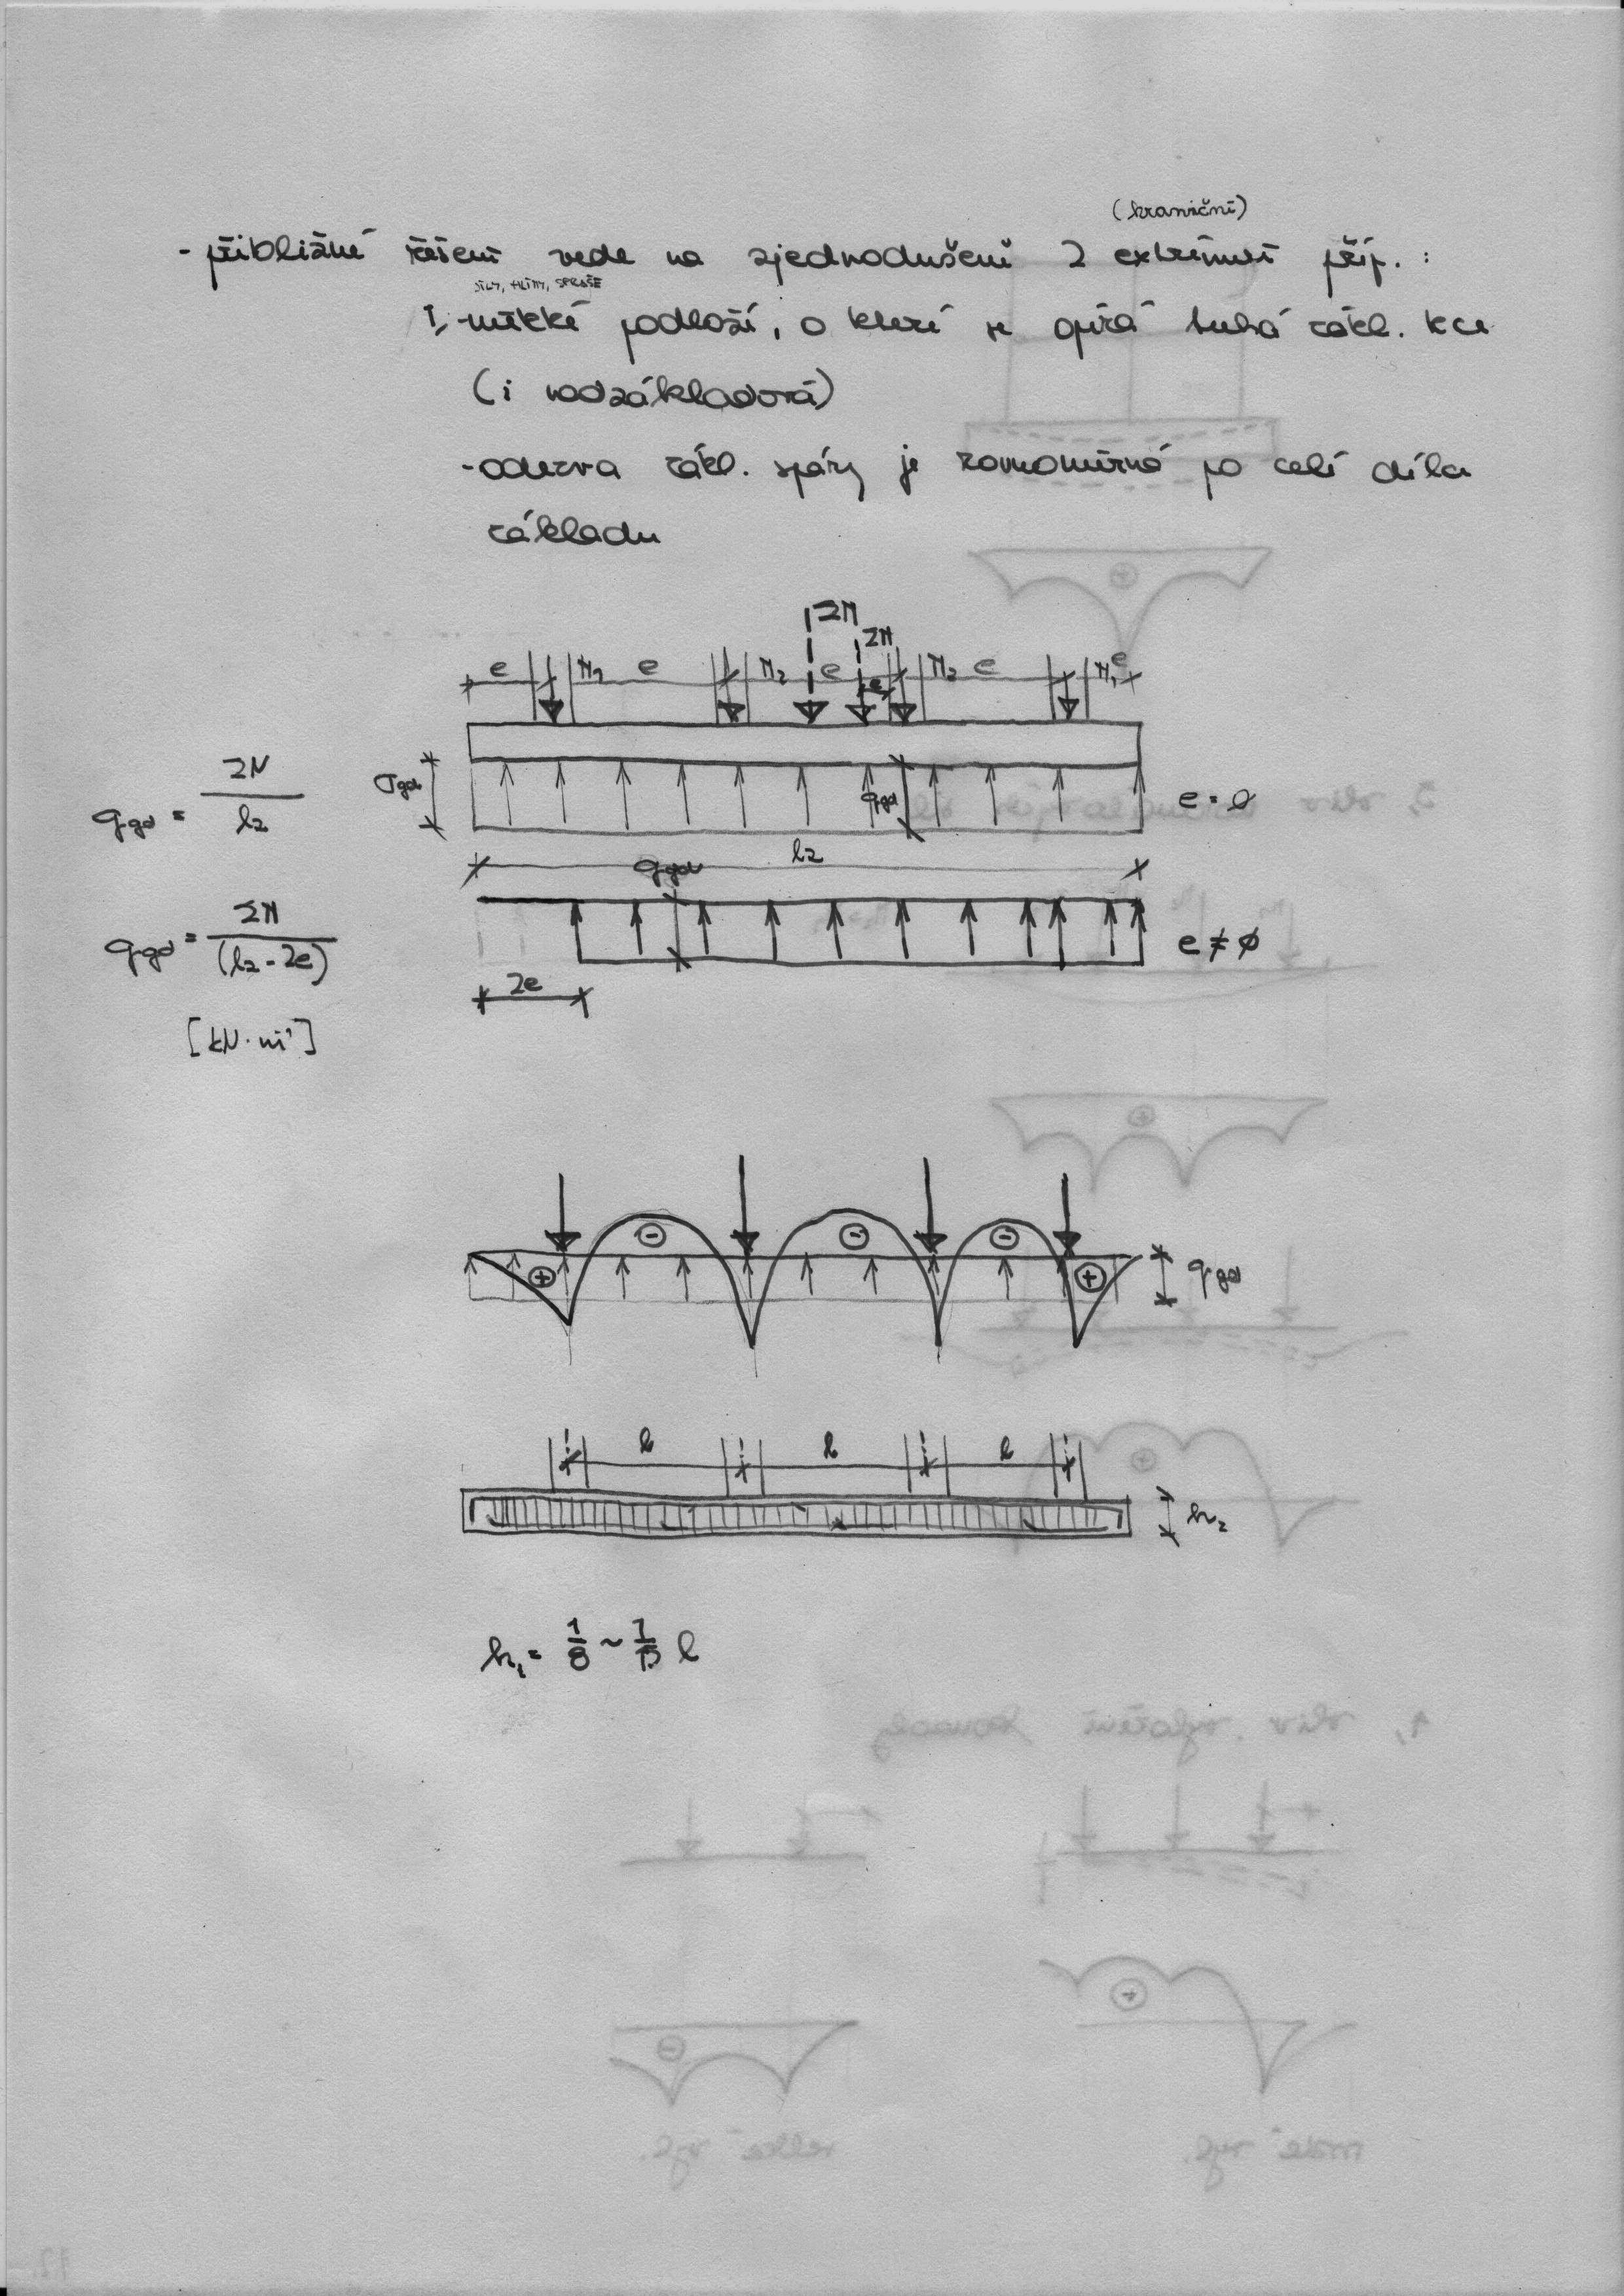 (hraniční)
- přibližné řešení vede na zjednodušení 2 extrémní příp. :
JÍLY, HLÍNY, SPRAŠE
I, - měkké podloží, o které se opírá tuhá zákl. kce
(i nadzákladová)
- odezva zákl. spáry je rovnoměrná po celé délce
základu
ΣN
ΣN
e N1 e N2 e e N2 e N1 e
σgd
qgd
qgd = ΣN / lz
e = 0
lz
qgd
qgd = ΣN / (lz - 2e)
e ≠ ø
2e
[kN·m']
- - -
+ +
qgd
l l l
h1 = 1/8 ~ l